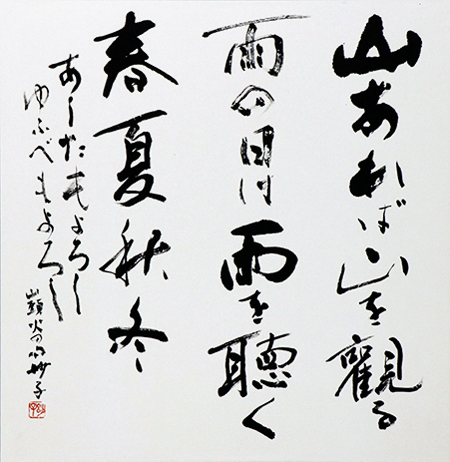 山あれば山を觀る
雨の日は雨を聴く
春夏秋冬
あしたもよろし
ゆふべもよろし
山頭火の句 妙子